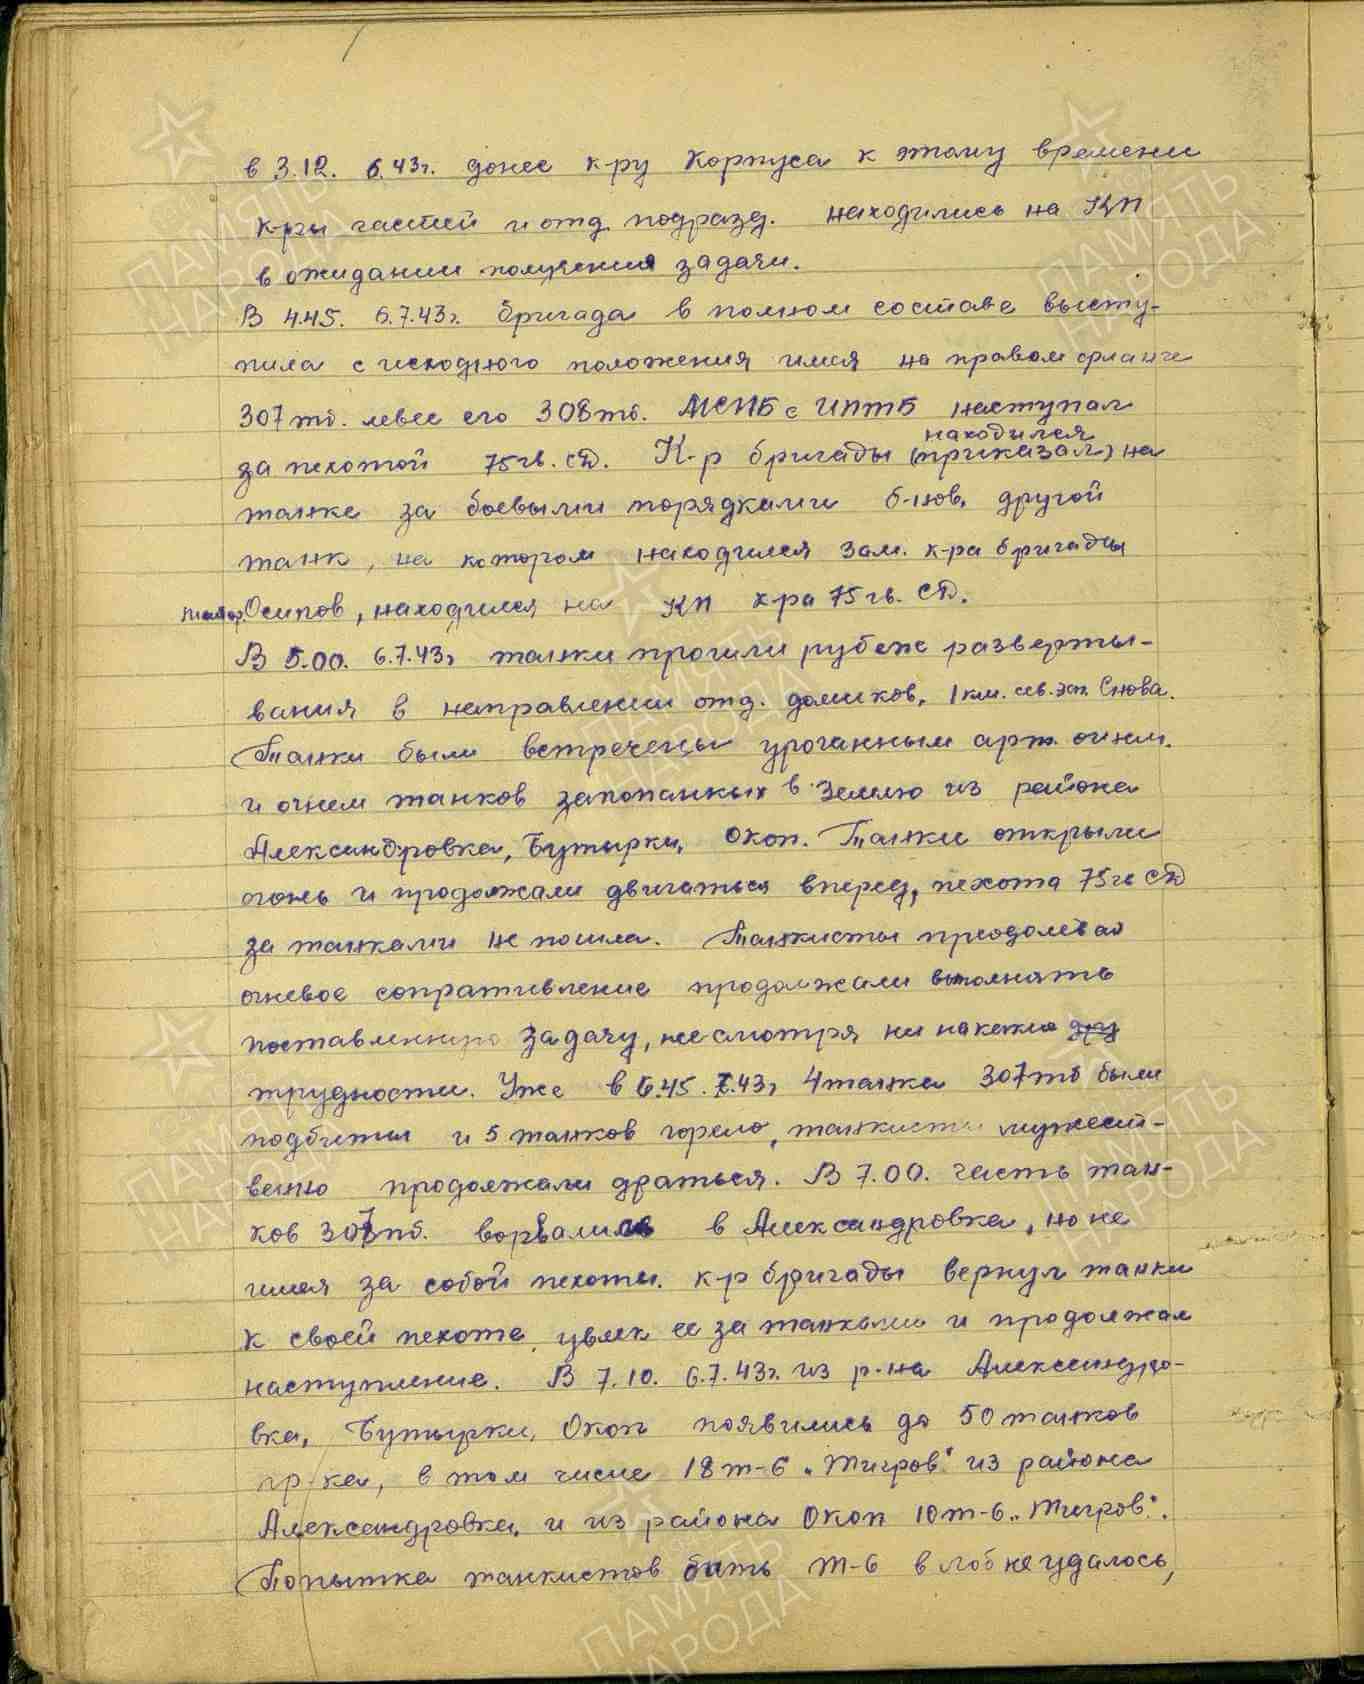 в 3.12. 6.43г. донес к-ру Корпуса к этому времени
к-ры частей и отд. подразд. находились на КП
в ожидании получения задачи.
В 4.45. 6.7.43г. бригада в полном составе высту-
пила с исходного положения имея на правом фланге
307тб. левее его 308тб. МСПБ с ИПТБ наступал
находился
за пехотой 75гв. СД. К-р бригады (приказал) на
танке за боевыми порядками б-нов, другой
танк, на котором находился зам. к-ра бригады
майор Осипов, находился на КП к-ра 75гв. СД.
В 5.00. 6.7.43г танки прошли рубеж разверты-
вания в направлении отд. домиков, 1 км. сев. зап. Снова.
Танки были встречены ураганным арт. огнем.
и огнем танков закопанных в землю из района
Александровка, Бутырки, Окоп. Танки открыли
огонь и продолжали двигаться вперед, пехота 75гв СД
за танками не пошла. Танкисты преодолевая
огневое сопративление продолжали выполнять
поставленную задачу, несмотря ни на какие
трудности. Уже в 6.45. 7.43г 4 танка 307тб были
подбиты и 5 танков горело, танкисты мужест-
венно продолжали драться. В 7.00. часть тан-
ков 307тб. ворвались в Александровка, но не
имея за собой пехоты. к-р бригады вернул танки
к своей пехоте, увлек ее за танками и продолжал
наступление. В 7.10. 6.7.43г. из р-на Александро-
вка, Бутырки, Окоп появились до 50 танков
пр-ка, в том числе 18 т-6 „Тигров" из района
Александровка, и из района Окоп 10 т-6 „Тигров".
Попытка танкистов бить Т-6 в лоб не удалось,
ПАМЯТЬ
НАРОДА
ПАМЯТЬ
НАРОДА
ПАМЯТЬ
НАРОДА
ПАМЯТЬ
НАРОДА
ПАМЯТЬ
НАРОДА
ПАМЯТЬ
НАРОДА